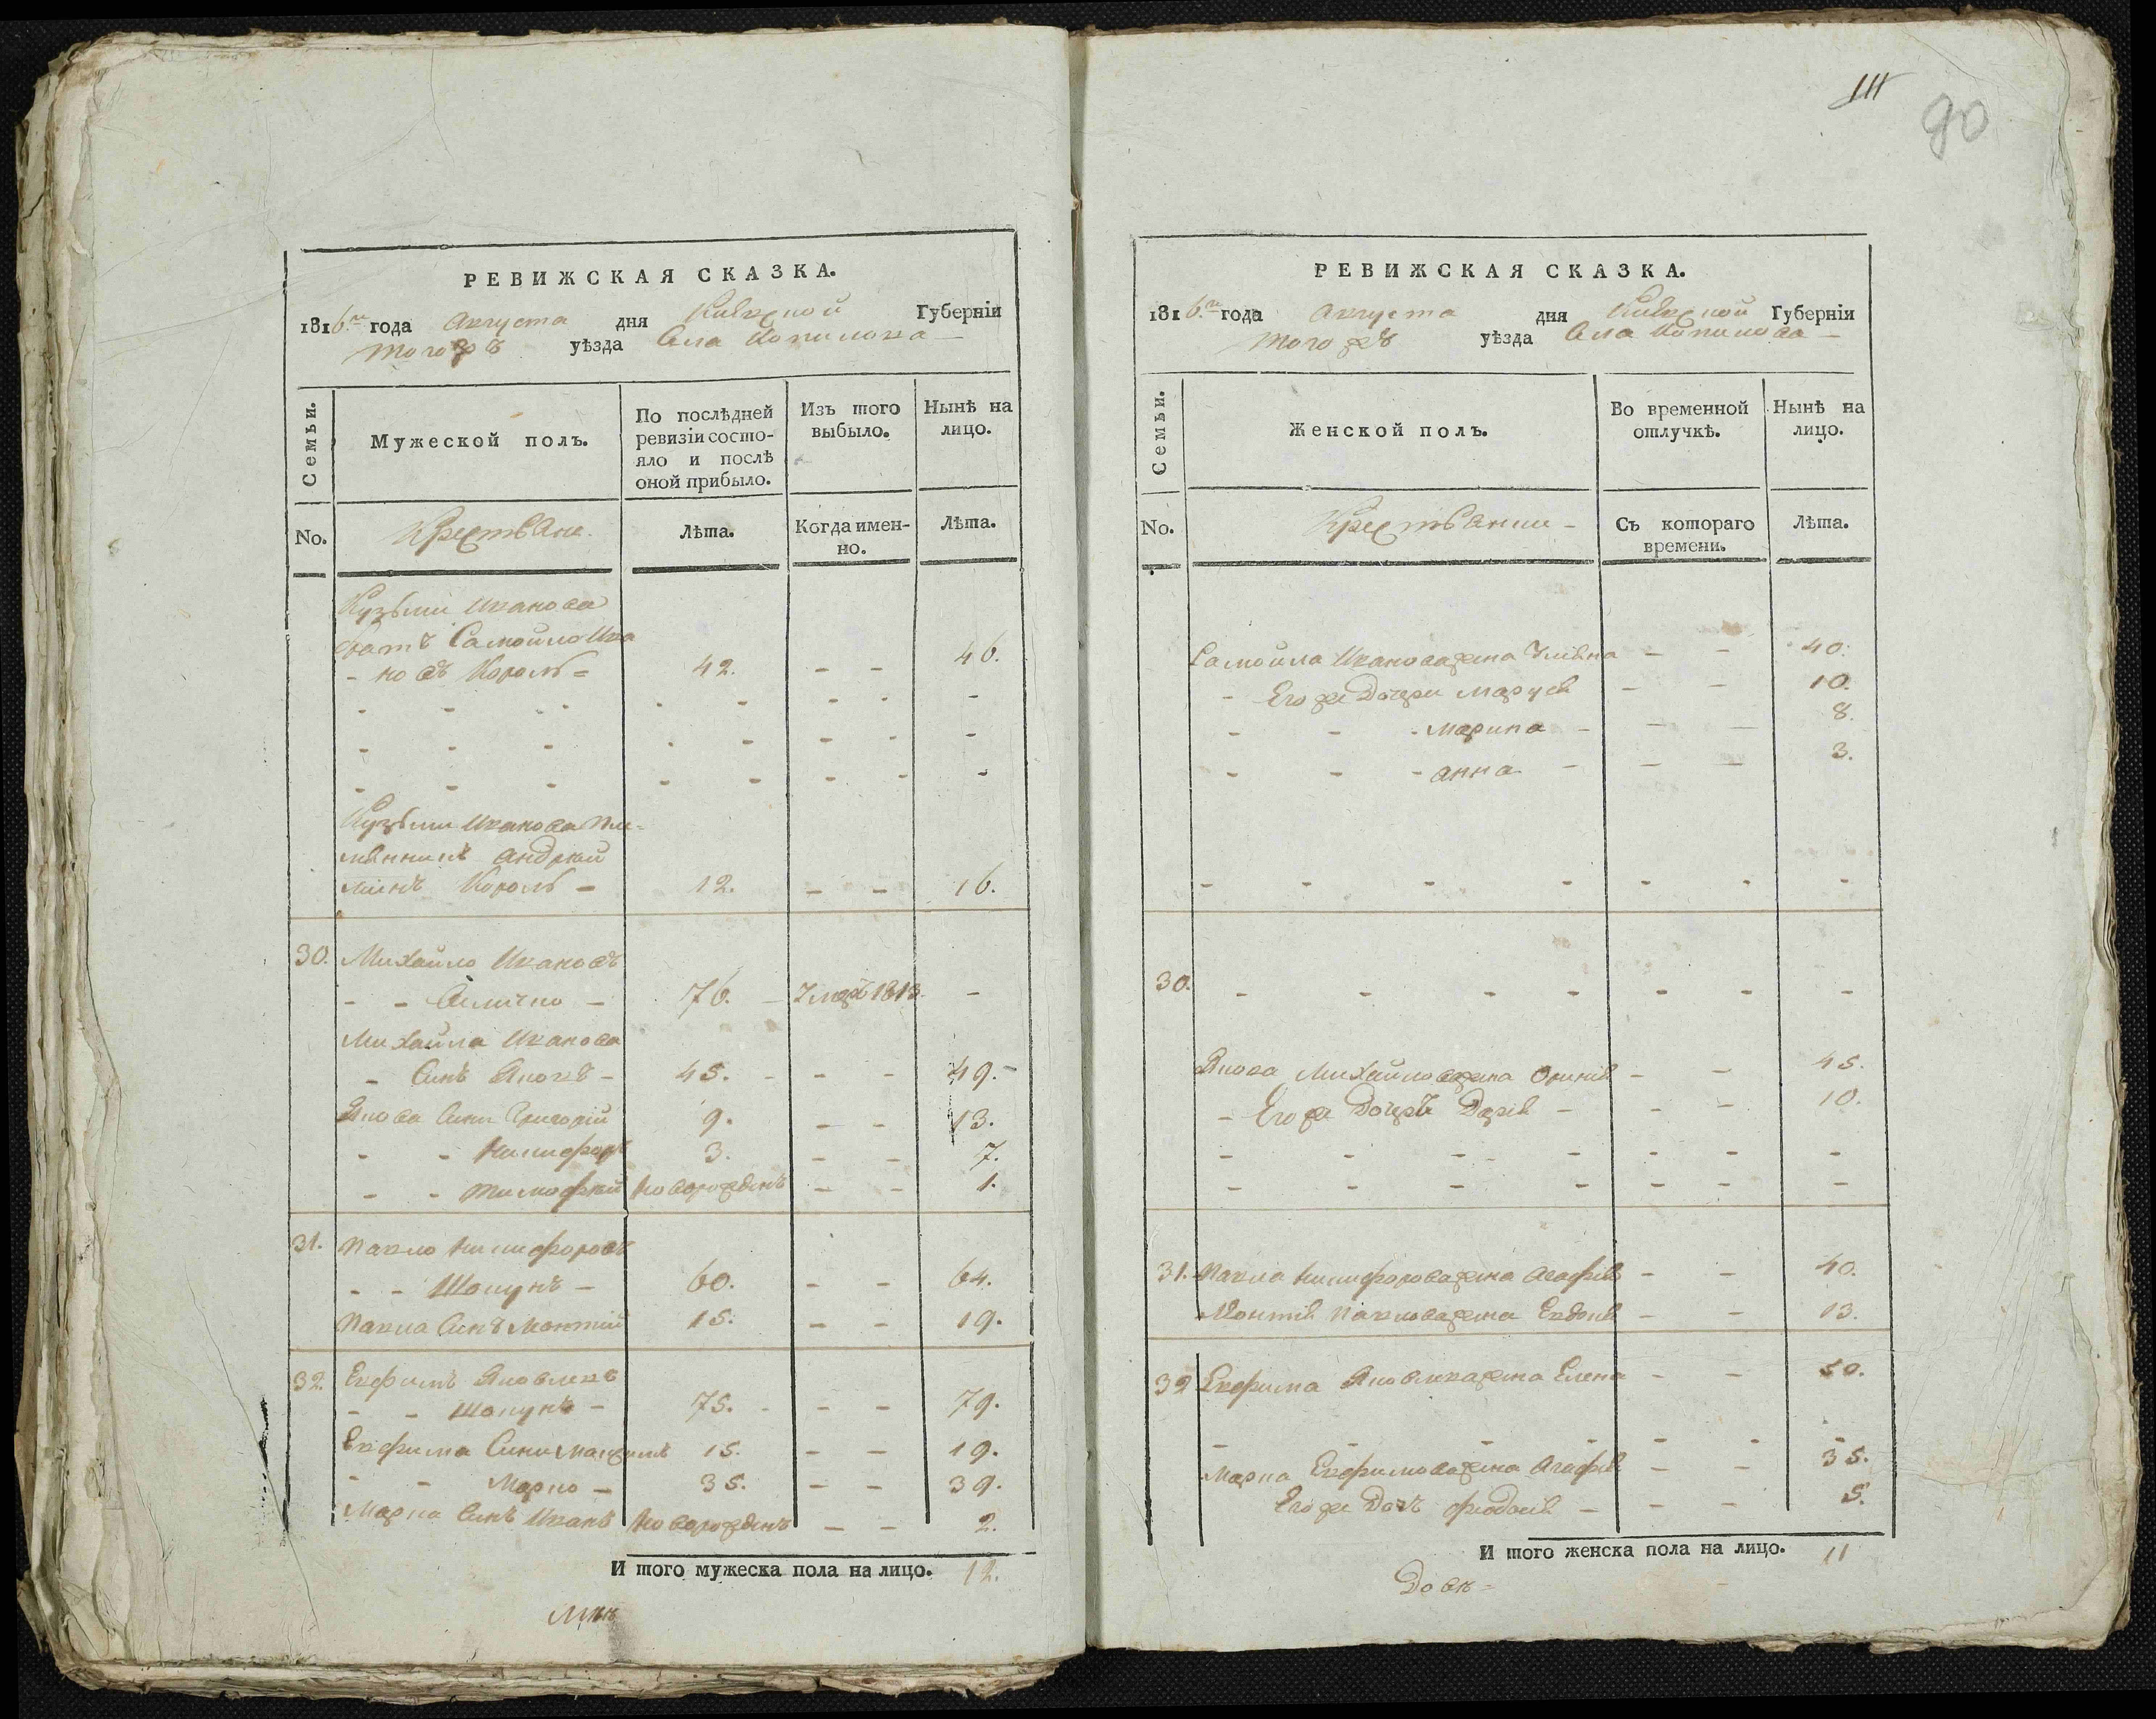 РЕВИЖСКАЯ СКАЗКА.
1816.го года Августа дня Киевской Губерніи
тогожъ уѣзда Села Копилова
Семьи.
Мужеской полъ.
По послѣдней ревизіи состо-
яло и послѣ
оной прибыло.
Изъ того
выбыло.
Нынѣ на
лицо.
No.
Крестьяне
Лѣта.
Когда имен-
но.
Лѣта.
Кузьми Иванова
братъ Самойло Ива
новъ Король 42. - - 46.
- - - - - - - -
- - - - - - - -
- - - - - - - -
Кузьми Иванова пле-
мѣнникъ Андрей
Король - 12. - - 16.
30. Михайло Ивановъ
- - 76. - 1813. -
Михайла Иванова
- Синъ Яковъ - 45. - - - 49.-
Якова Сини Григорій 9. - - 13.
- - Никифоръ 3. - - 7.
- - Тимофѣй новорожденъ - - 1.
31. Павло Никифоровъ
- - Шопунъ - 60. - - 64.
Павла Синъ 15. - - 19.
32. Евфимъ Яковлевъ
- - Шопунъ - 75. - - - 79.
Евфима Сини Максимъ 15. - - 19.
- - Марко - 35. - - 39.
Марка Синъ Иванъ новорожденъ - - 2.
И того мужеска пола на лицо. 12.
111
90
РЕВИЖСКАЯ СКАЗКА.
1816.го года Августа дня Киевской Губерніи
тогожъ уѣзда Села Копилова -
Семьи.
Женской полъ.
Во временной
отлучкѣ.
Нынѣ на
лицо.
No.
Крестьянки -
Съ котораго
времени.
Лѣта.
Самойла Иванова жена - - 40.
- Его же Дочери - - 10.
- - - Марина - - - 8.
- - - Анна - - - 3.
- - - - - - -
30. - - - - - - -
Якова Михайлова жена - - 45.
- Его же Дочерь - - - 10.
- - - - - - -
- - - - - - -
31. Павла Никифорова жена Агафія - - 40.
Павлова жена Евдокія - - 13.
32 Евфима Яковлева жена Елена - - 50.
- - - - - - -
Марка Евфимова жена Агафія - - 35.
Его же Дочь Феодосія - - - 5.
И того женска пола на лицо. 11